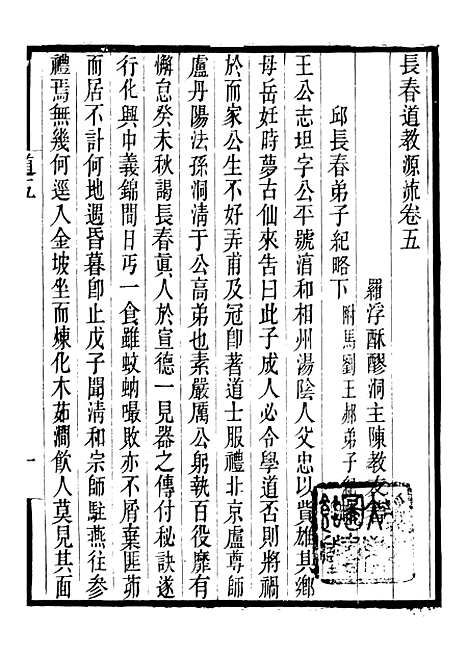 長春道教源流卷五
羅浮酥醪洞主陳教友
邱長春弟子紀略下 附馬劉王郝弟子紀
王公志坦字公平號湻和相州湯陰人父忠以貲雄其鄉
母岳妊時夢古仙來告曰此子成人必令學道否則將禍
於而家公生不好弄甫及冠卽著道士服禮北京盧尊師
盧丹陽法孫洞清于公高弟也素嚴厲公躬執百役靡有
懈怠癸未秋謁長春眞人於宣德一見器之傳付秘訣遂
行化興中義錦間日丐一食雖蚊蚋嘬敗亦不屑棄匪茆
而居不計何地遇昏暮卽止戊子聞清和宗師駐燕往參
禮焉無幾何逕入金坡坐而煉化木茹澗飮人莫見其面
道五
一